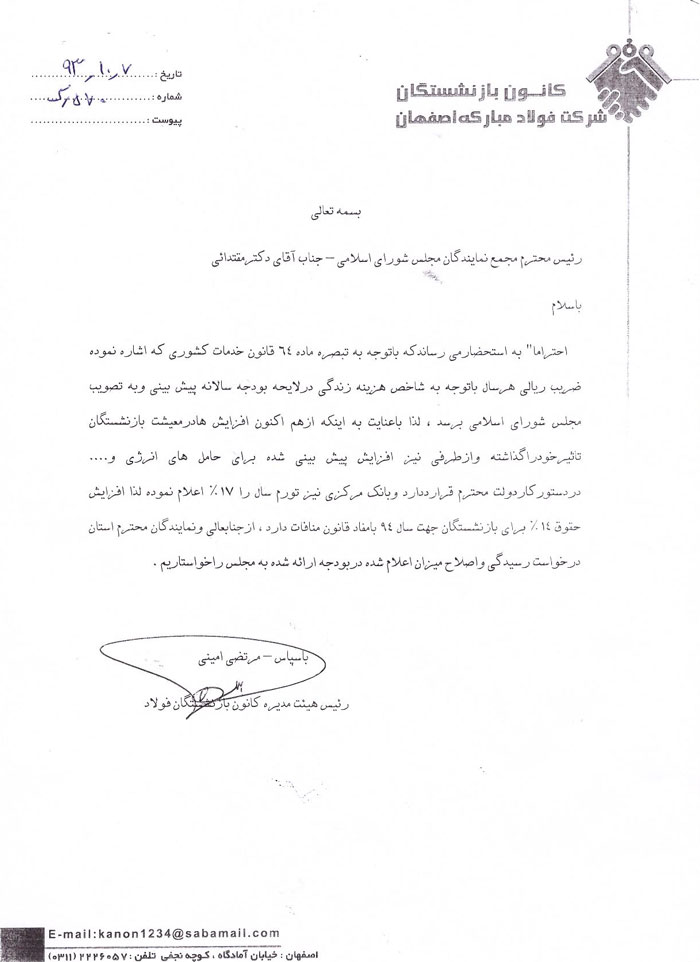 کانون بازنشستگان
شرکت فولاد مبارکه اصفهان
تاریخ : ۹۳,۱۰,۷
شماره :
پیوست :
بسمه تعالی
رئیس محترم مجمع نمایندگان مجلس شورای اسلامی – جناب آقای دکترمقتدائی
باسلام
احتراما" به استحضارمی رساندکه باتوجه به تبصره ماده ٦٤ قانون خدمات کشوری که اشاره نموده
ضریب ریالی هرسال باتوجه به شاخص هزینه زندگی درلایحه بودجه سالانه پیش بینی وبه تصویب
مجلس شورای اسلامی برسد ، لذا باعنایت به اینکه ازهم اکنون افزایش هادرمعیشت بازنشستگان
تاثیرخودراگذاشته وازطرفی نیز افزایش پیش بینی شده برای حامل های انرژی و....
دردستورکاردولت محترم قرارددارد وبانک مرکزی نیز تورم سال را ۱۷٪ اعلام نموده لذا افزایش
حقوق ۱٤ ٪ برای بازنشستگان جهت سال ۹٤ بامفاد قانون منافات دارد ، ازجنابعالی ونمایندگان محترم استان
درخواست رسیدگی واصلاح میزان اعلام شده دربودجه ارائه شده به مجلس راخواستاریم .
باسپاس – مرتضی امینی
رئیس هیئت مدیره کانون بازنشستگان فولاد
E-mail:kanon1234@sabamail.com
اصفهان : خیابان آمادگاه ، کوچه نجفی تلفن : ۲۲۲۶۰۵۷ (۰۳۱۱)